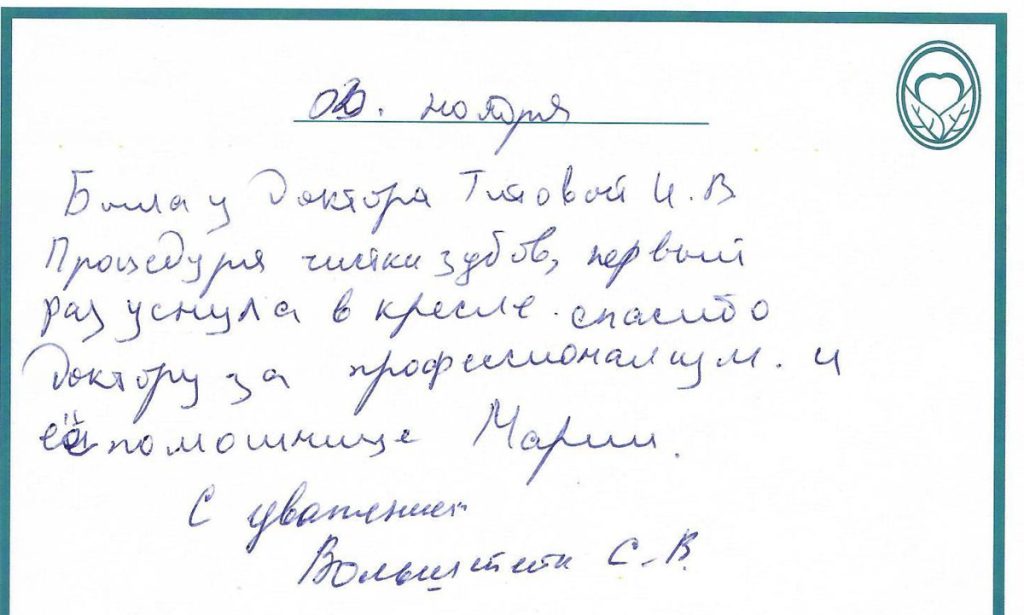 ноября
Была у Доктора Титовой И. В
Процедура чистки зубов, первый
раз уснула в кресле. спасибо
Доктору за профессионализм. и
её помошнице Марии.
С уважением
С. В.